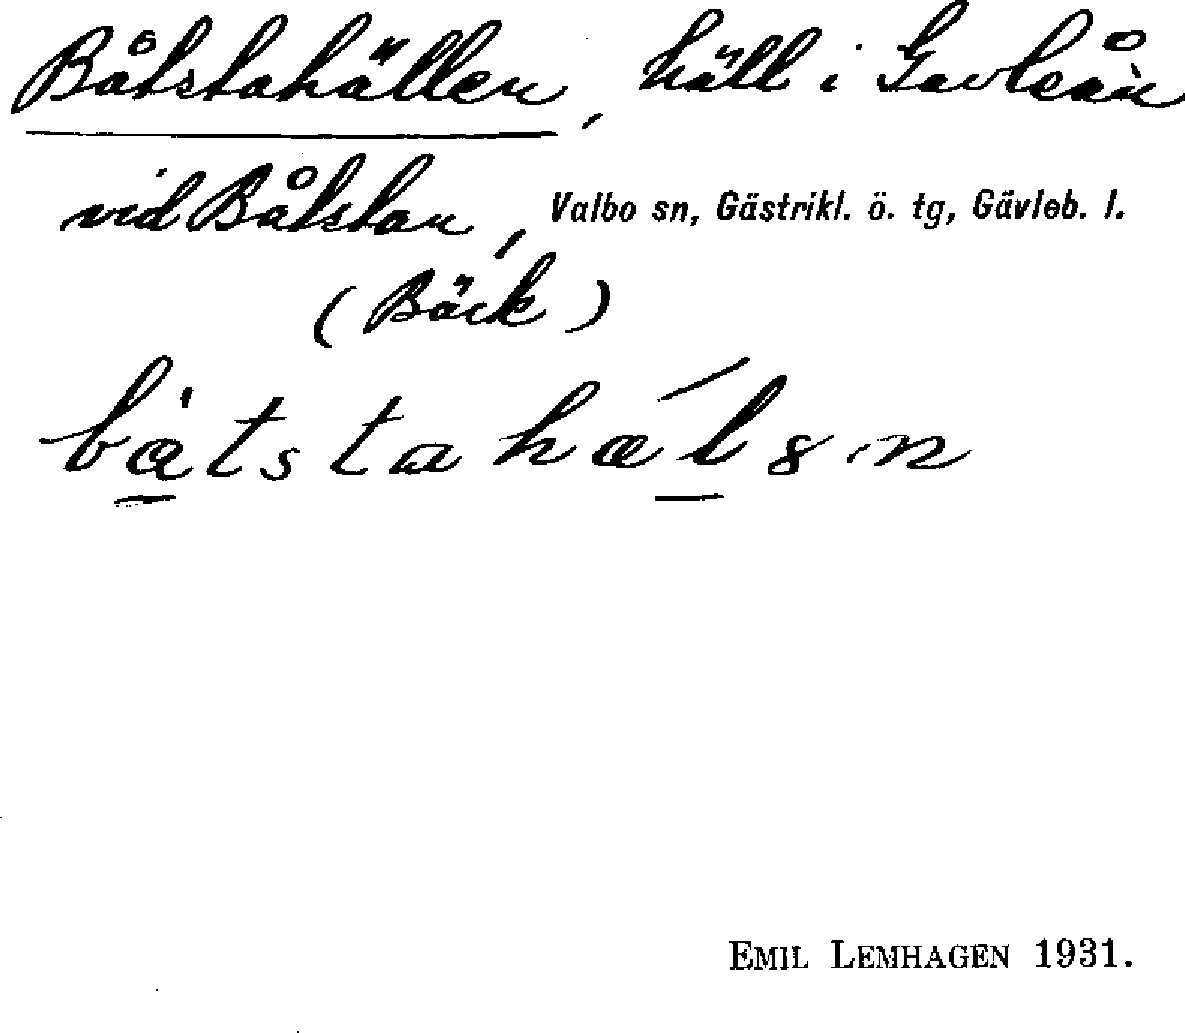 Båtstahällen, häll i Gavleån
vid Båtstan, Valbo sn, Gästrikl. ö. tg, Gävleb. l.
(Bäck)
EMIL LEMHAGEN 1931.